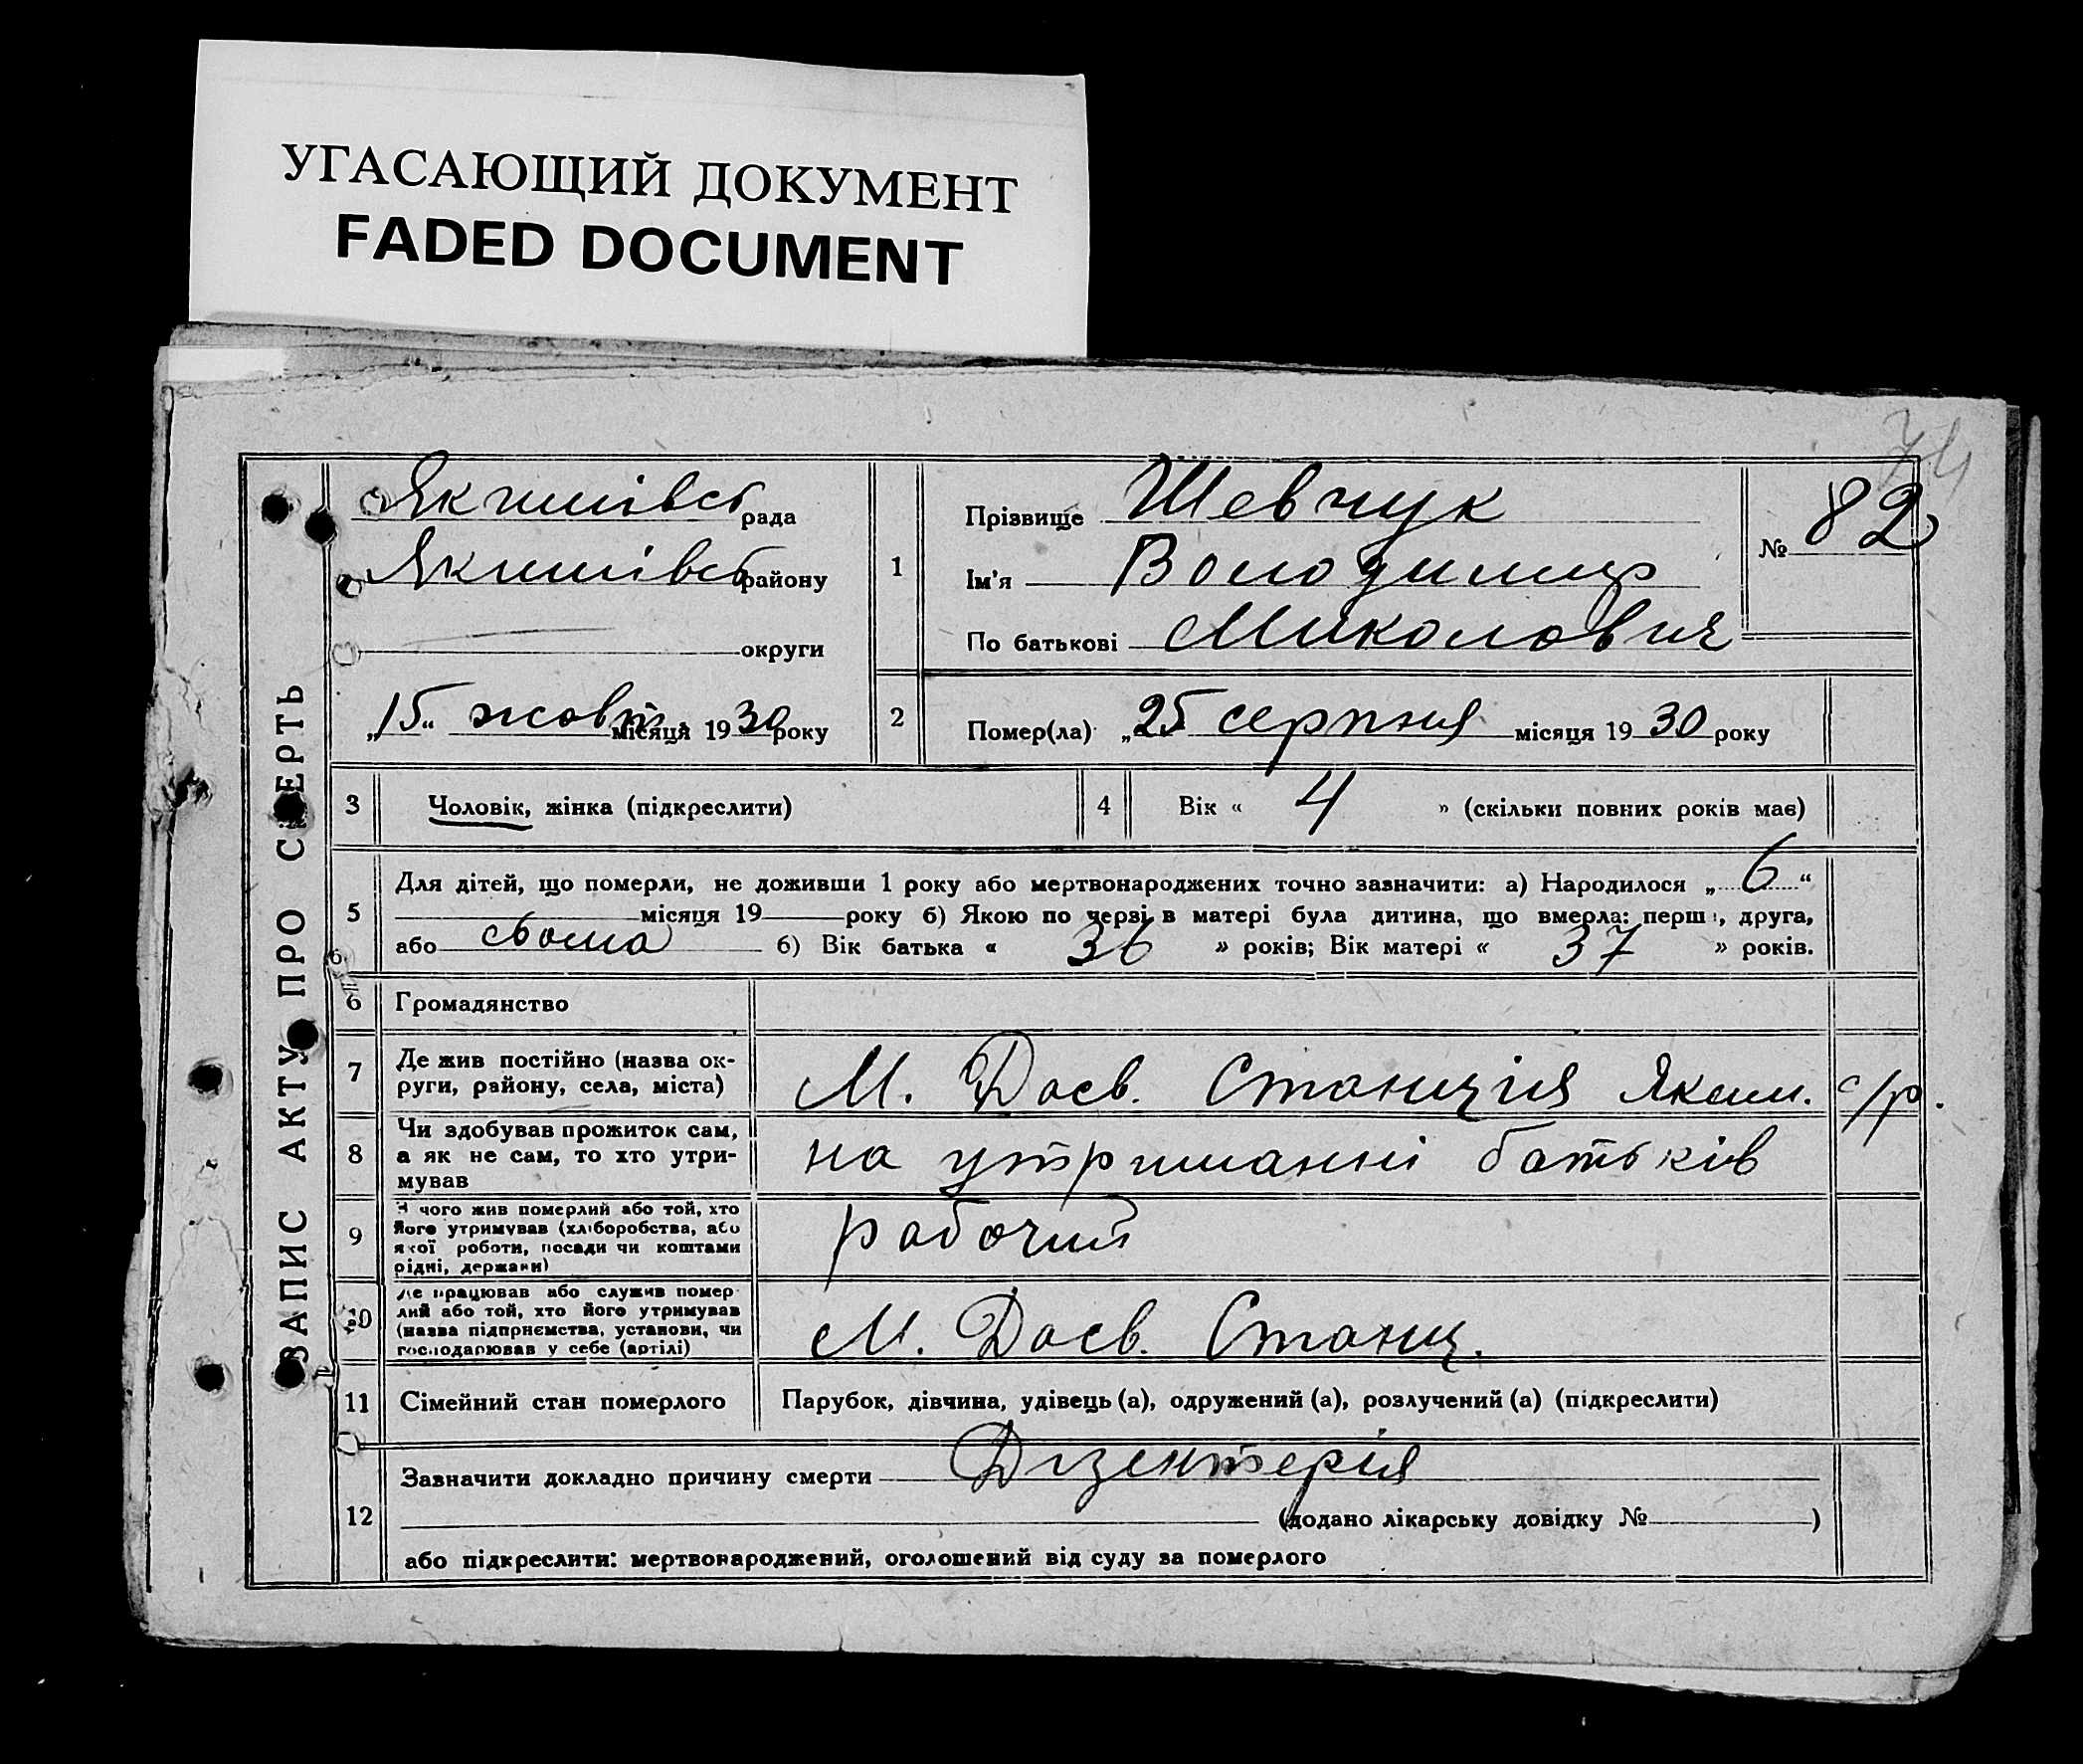 УГАСАЮЩИЙ ДОКУМЕНТ
FADED DOCUMENT
74
ЗАПИС АКТУ ПРО СМЕРТЬ
Якимівсб рада
Якимівсб району
округи
„15“ жовт. місяця 1930 року
1
Прізвище Шевчук
Ім'я Володимир
По батькові Миколович
№ 82
2
Помер(ла) „25 серпня місяця 1930 року
3 Чоловік, жінка (підкреслити)
4 Вік « 4 » (скільки повних років має)
5
Для дітей, що померли, не доживши 1 року або мертвонароджених точно зазначити: а) Народилося „ 6 “
місяця 19 року б) Якою по черзі в матері була дитина, що вмерла: перша, друга,
або сьома б) Вік батька « 36 » років; Вік матері « 37 » років.
6 Громадянство
7
Де жив постійно (назва ок-
руги, району, села, міста)
М. Досв. Станція Яким. с/р.
8
Чи здобував прожиток сам,
а як не сам, то хто утри-
мував
на утриманні батьків
9
З чого жив померлий або той, хто
його утримував (хліборобства, або
якої роботи, посади чи коштами
рідні, держави)
рабочий
10
Де працював або служив помер-
лий або той, хто його утримував
(назва підприємства, установи, чи
господарював у себе (артілі)
М. Досв. Станц.
11 Сімейний стан померлого
Парубок, дівчина, удівець (а), одружений (а), розлучений (а) (підкреслити)
12
Зазначити докладно причину смерти Дізентерія
(додано лікарську довідку № )
або підкреслити: мертвонароджений, оголошений від суду за померлого